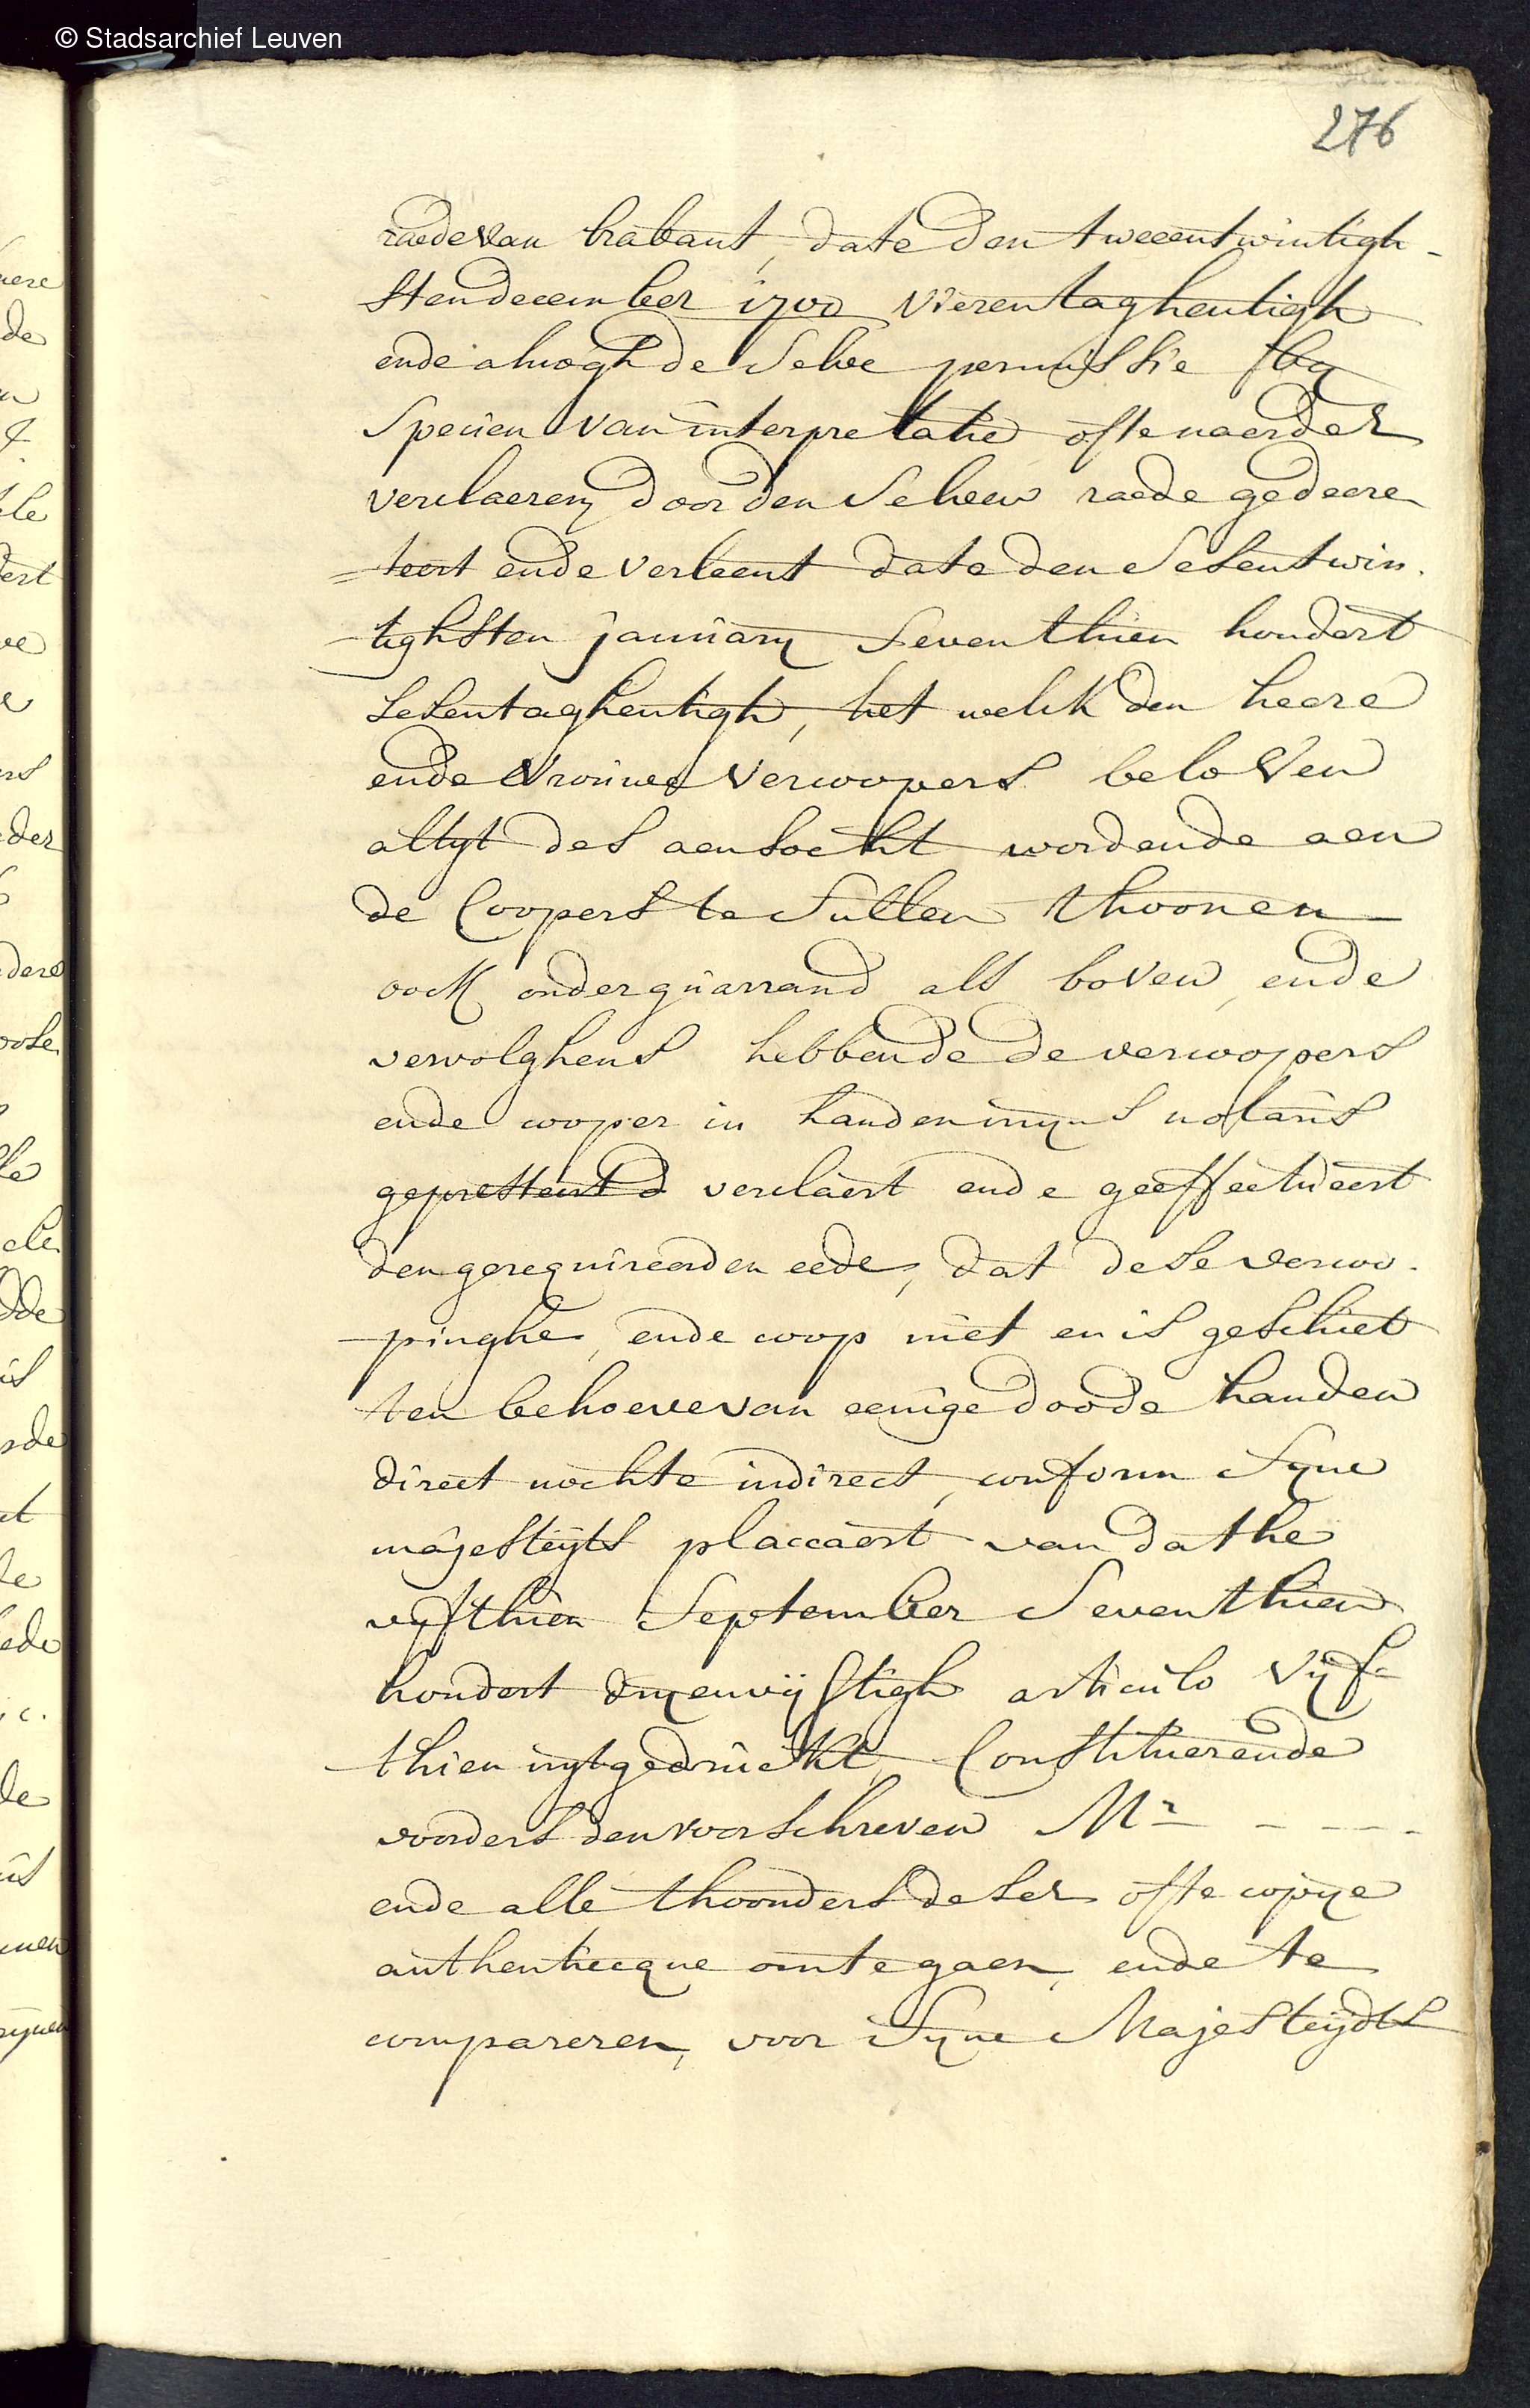 © Stadsarchief Leuven
276
raede van brabant, date den tweeentwintigh-
sten december 1700 vierentaghentigh
ende alnogh de selve permissie by
specien van interpretatie ofte naerder
verclaeren door den selven raede gedecre
=teert ende verleent date den sesentwin.
-tighsten january seventhien hondert
sesentaghentigh, het welck den heere
ende vrouwe vercoopers beloven
altyt des aensocht wordende aen
de coopers te sullen thoonen
oock onder guarrand als boven, ende
vervolghens hebbende de vercoopers
ende cooper in handen myns notaris
gepresteert d verclaert ende geeffectueert
den gerequireerden eede, dat dese vercoo-
-pinghe, ende coop niet en is geschiet
ten behoeve van eenige doode handen
direct nochte indirect, conform syne
majesteyts placcaert van dathe
vyfthien september seventhien
hondert dryenvyftigh articulo vyf-
-thien uytgedruckt, Constituerende
voorders den voorschreven Mr - - - -
ende alle thoonders deser ofte copye
authenticque om te gaen, ende te
compareren, voor syne Majesteydts